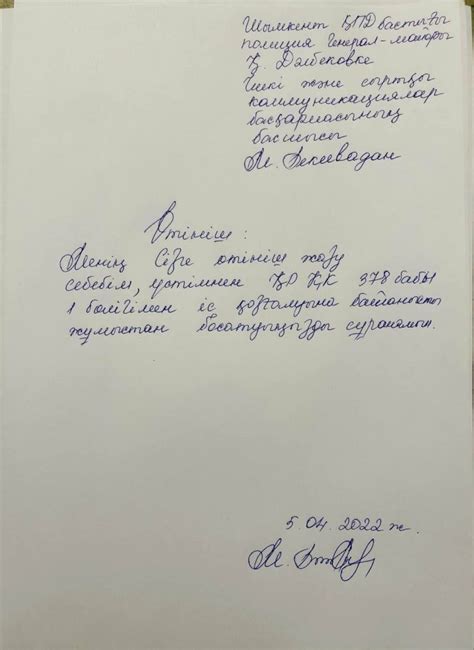 Шымкент ҚПД бастығы
полиция генерал-майоры
Қ. Дәлбековке
Ішкі және сыртқы
коммуникациялар
басқармасының
басшысы
М. Бекеевадан
Өтініш:
Менің Сізге өтініш жазу
себебім, үстімнен ҚР ҚК 378 бабы
1 бөлігімен іс қозғалуына байланысты
жұмыстан босатуыңызды сұранамын.
5.04.2022 ж.